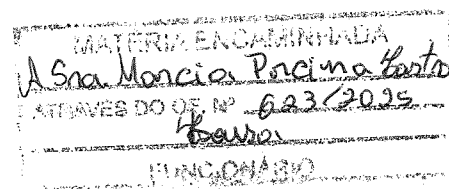 MATÉRIA ENCAMINHADA
A Sra Marcia Porcina
ATRAVÉS DO OF. Nº 623/2025
FUNCIONÁRIO